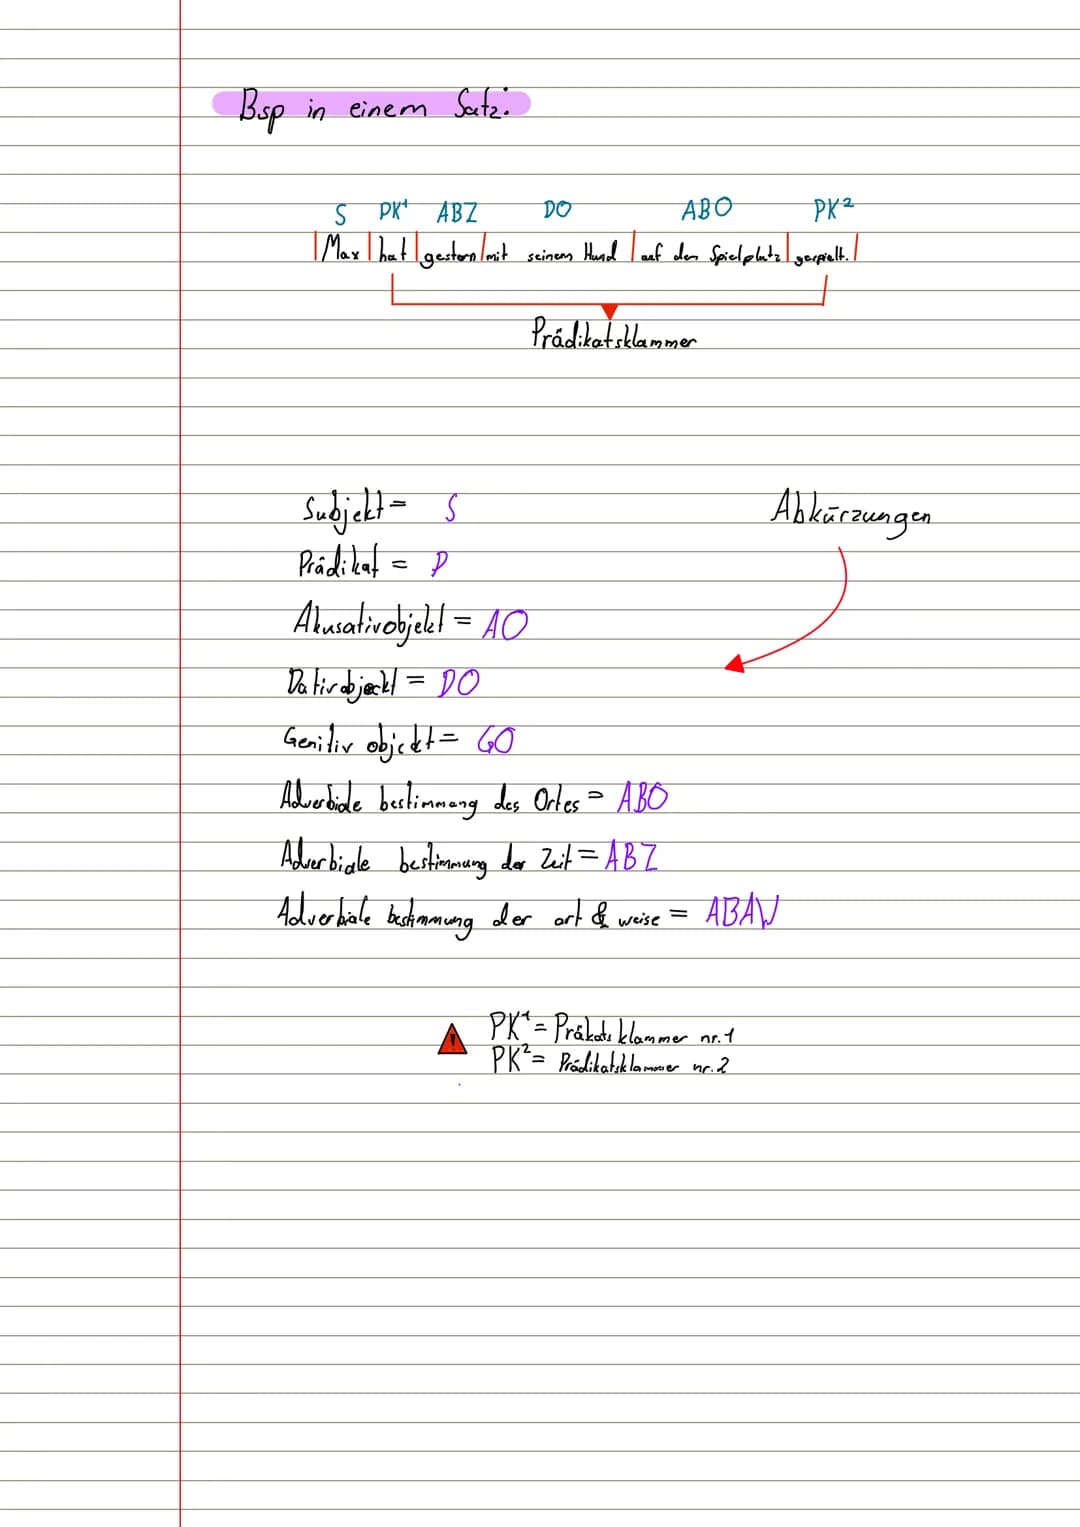 Bsp in einem Satz:
S PK¹ ABZ DO ABO PK²
|Max | hat | gestern | mit seinem Hund | auf dem Spielplatz | gespielt. |
Prädikatsklammer
Subjekt = S
Abkürzungen
Prädikat = P
Akusativobjekt = AO
Dativobjeckt = DO
Genitiv objekt = GO
Adverbiale bestimmung des Ortes = ABO
Adverbiale bestimmung der Zeit = ABZ
Adverbiale bestimmung der art & weise = ABAW
PK¹ = Präkats klammer nr. 1
PK² = Prädikatsklammer nr. 2